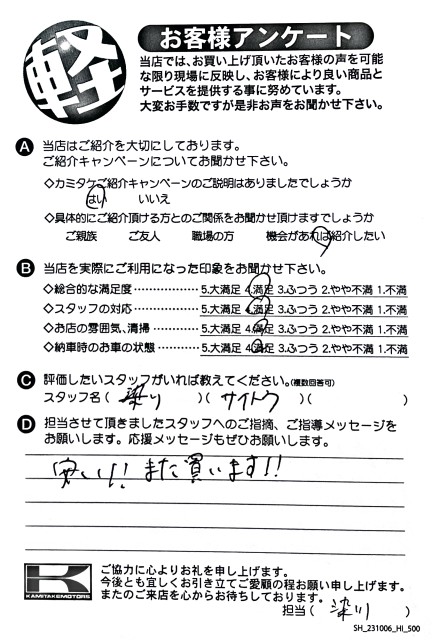 軽
お客様アンケート
当店では、お買い上げ頂いたお客様の声を可能
な限り現場に反映し、お客様により良い商品と
サービスを提供する事に努めています。
大変お手数ですが是非お声をお聞かせ下さい。
A 当店はご紹介を大切にしております。
ご紹介キャンペーンについてお聞かせ下さい。
◇カミタケご紹介キャンペーンのご説明はありましたでしょうか
はい いいえ
◇具体的にご紹介頂ける方とのご関係をお聞かせ頂けますでしょうか
ご親族 ご友人 職場の方 機会があれば紹介したい
B 当店を実際にご利用になった印象をお聞かせ下さい。
◇総合的な満足度 ・・・・・・・・・・・・・ 5.大満足 4.満足 3.ふつう 2.やや不満 1.不満
◇スタッフの対応 ・・・・・・・・・・・・・ 5.大満足 4.満足 3.ふつう 2.やや不満 1.不満
◇お店の雰囲気、清掃 ・・・・・・・・・ 5.大満足 4.満足 3.ふつう 2.やや不満 1.不満
◇納車時のお車の状態 ・・・・・・・・・ 5.大満足 4.満足 3.ふつう 2.やや不満 1.不満
C 評価したいスタッフがいれば教えてください。(複数回答可)
スタッフ名 ( 染川 )( サイトウ )( )
D 担当させて頂きましたスタッフへのご指摘、ご指導メッセージを
お願いします。応援メッセージもぜひお願いします。
安い!! また買います!!
KAMITAKEMOTORS
ご協力に心よりお礼を申し上げます。
今後とも宜しくお引き立てご愛顧の程お願い申し上げます。
またのご来店を心からお待ちしております。
担当 ( 染川 )
SH_231006_Hi_500